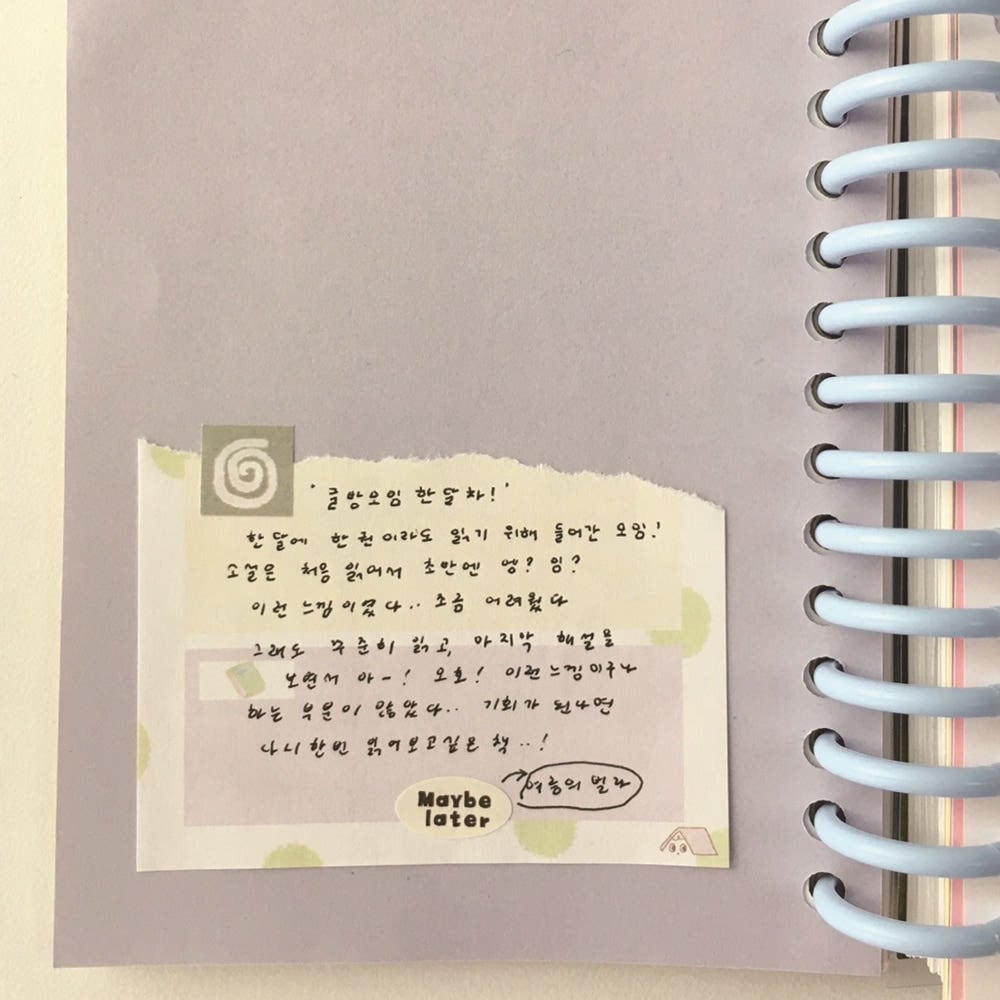 '글방모임 한달차!'
한달에 한권이라도 읽기 위해 들어간 모임!
소설은 처음 읽어서 초반엔 엥? 잉?
이런 느낌이였다.. 조금 어려웠다
그래도 꾸준히 읽고, 마지막 해설을
보면서 아-! 오호! 이런느낌이구나
하는 부분이 많았다.. 기회가 된다면
다시한번 읽어보고싶은 책..!
여름의 빌라
Maybe
later